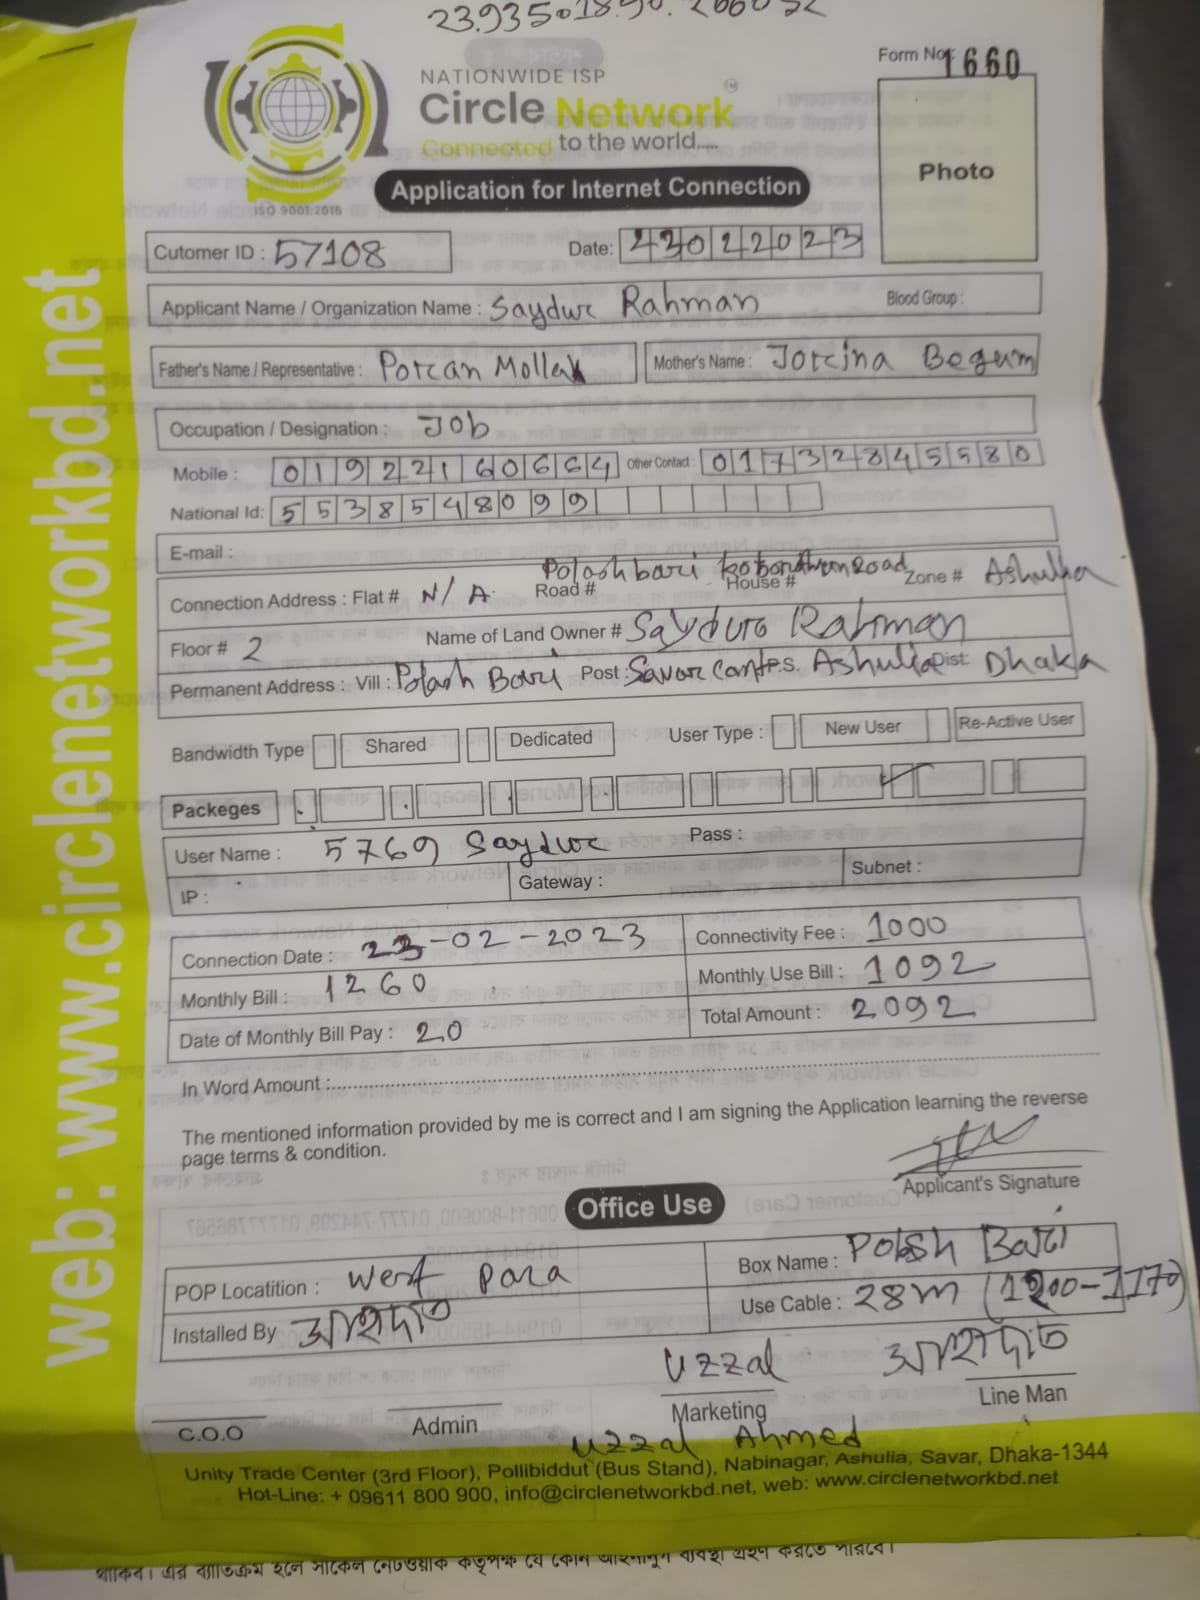 Form No: 1660
NATIONWIDE ISP
Circle Network
Connected to the world.....
Photo
Application for Internet Connection
ISO 9001:2015
web: www.circlenetworkbd.net
Cutomer ID : 57108 Date: 23022023
Applicant Name / Organization Name : Saydur Rahman Blood Group :
Father's Name / Representative : Poran Mollah Mother's Name : Jorina Begum
Occupation / Designation : Job
Mobile : 01922160664 Other Contact : 01732845580
National Id: 5538548099
E-mail :
Connection Address : Flat # N/A Road # Polashbari House # Road Zone # Ashulia
Floor # 2 Name of Land Owner # Saydur Rahman
Permanent Address : Vill : Polash Bari Post : Savar Cant P.S. Ashulia Dist: Dhaka
Bandwidth Type Shared Dedicated User Type : New User Re-Active User
Packeges
User Name : 5769 Saydur Pass :
IP : Gateway : Subnet :
Connection Date : 23-02-2023 Connectivity Fee : 1000
Monthly Bill : 1260 Monthly Use Bill : 1092
Date of Monthly Bill Pay : 20 Total Amount : 2092
In Word Amount :
The mentioned information provided by me is correct and I am signing the Application learning the reverse
page terms & condition.
Applicant's Signature
Office Use
POP Locatition : West Para Box Name : Polash Bari
Installed By আহাদাত Use Cable : 28m (1200-1170)
Uzzal আহাদাত
C.O.O Admin Marketing Line Man
Uzzal Ahmed
Unity Trade Center (3rd Floor), Pollibiddut (Bus Stand), Nabinagar, Ashulia, Savar, Dhaka-1344
Hot-Line: + 09611 800 900, info@circlenetworkbd.net, web: www.circlenetworkbd.net
থাকিব। এর ব্যাতিক্রম হলে সার্কেল নেটওয়ার্ক কতৃপক্ষ যে কোন আইনানুগ ব্যবস্থা গ্রহণ করতে পারবে।